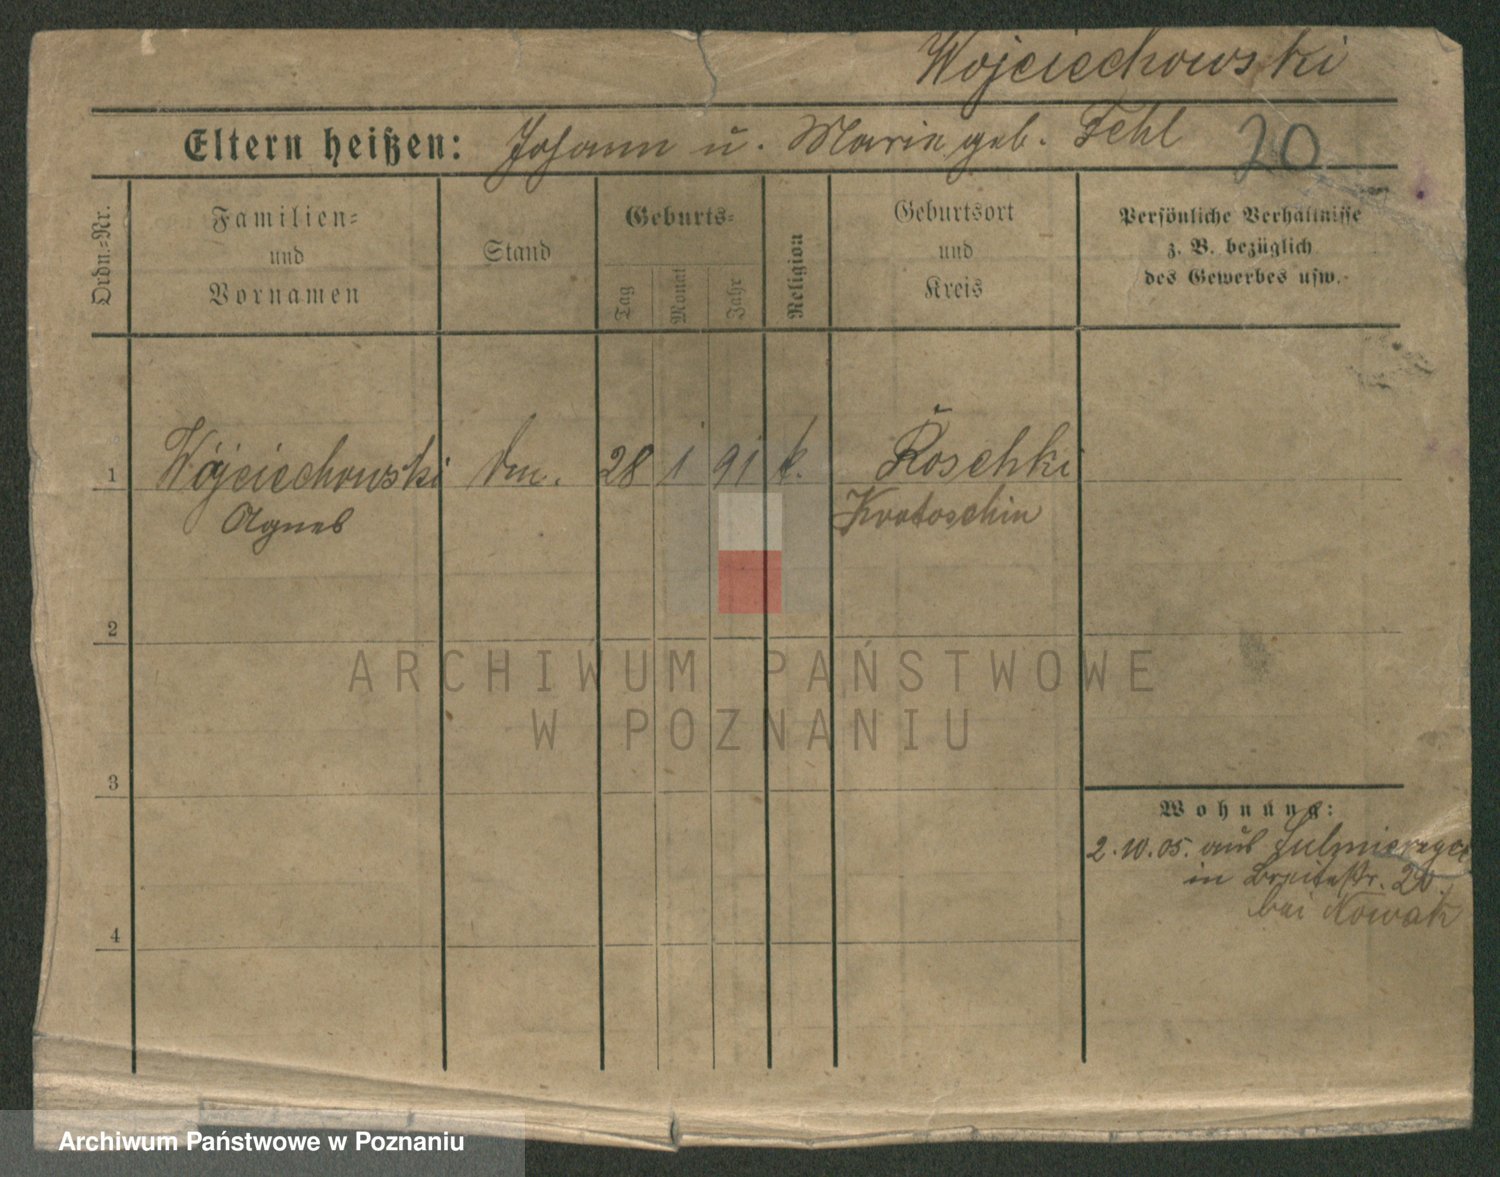 Wojciechowski
Eltern heißen: Johann u. Marie geb. Fehl 20
Ordn.-Nr.
Familien-
und
Vornamen
Stand
Geburts-
Tag
Monat
Jahr
Religion
Geburtsort
und
Kreis
Persönliche Verhältnisse
z. B. bezüglich
des Gewerbes usw.
1 Wojciechowski 28 1 91 k. Roschki
Agnes Krotoschin
2
3
Wohnung:
2.10.05. aus Sulmierzyce
in Breitestr. 20.
bei Nowak
4
ARCHIWUM PAŃSTWOWE
W POZNANIU
Archiwum Państwowe w Poznaniu